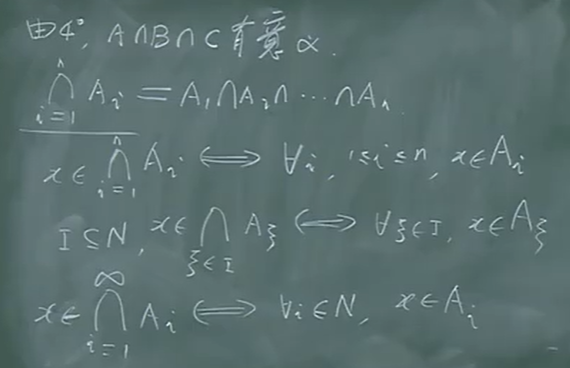 由4°, A∩B∩C有意义.
⋂_{i=1}^{n} A_i = A_1∩A_2∩⋯∩A_n
x∈⋂_{i=1}^{n} A_i ⟺ ∀i, 1≤i≤n, x∈A_i
I⊆N, x∈⋂_{ξ∈I} A_ξ ⟺ ∀ξ∈I, x∈A_ξ
x∈⋂_{i=1}^{∞} A_i ⟺ ∀i∈N, x∈A_i